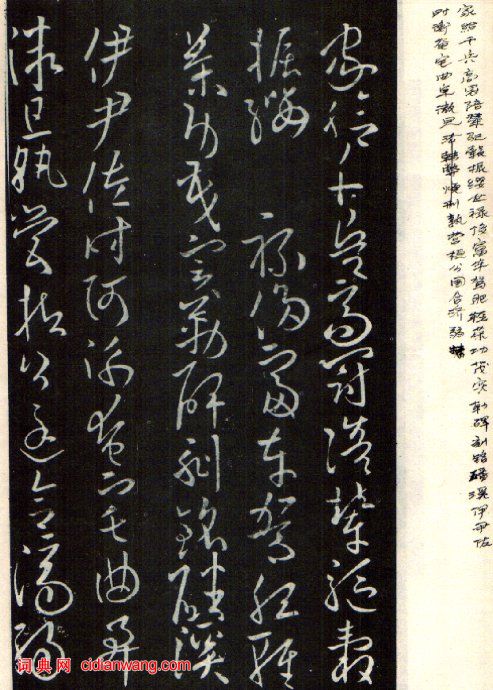 家给千兵高冠陪辇驱毂振缨世禄侈富车驾肥轻策功茂实勒碑刻铭磻溪伊尹佐
时衡奄宅曲阜微旦孰营桓公匡合济弱
家給千兵高冠陪輦驅轂
振纓祿侈富車駕肥輕
策功茂實勒碑刻銘磻溪
伊尹佐時阿衡奄宅曲阜
微旦孰營桓公匡合濟弱
词典网 cidianwang.com